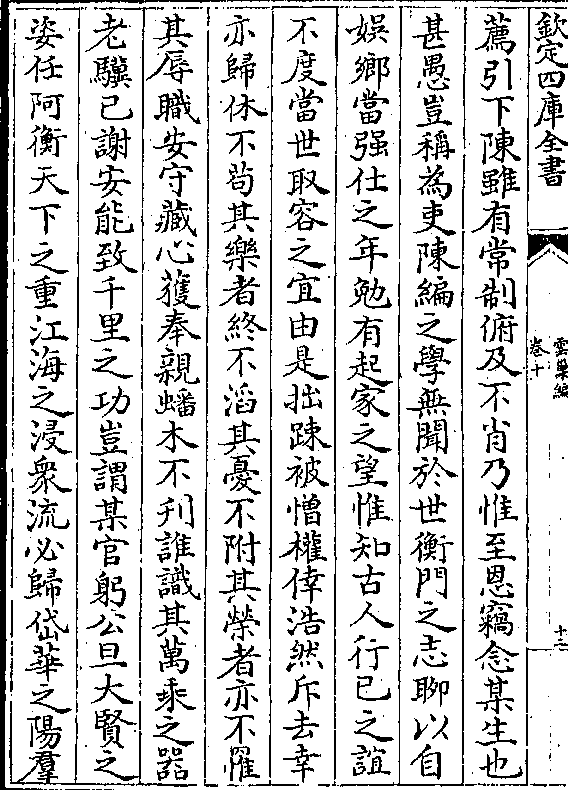 欽定四庫全書
雲巢編
卷十
十二
薦引下陳雖有常制俯及不肖乃惟至恩竊念某生也
甚愚豈稱為吏陳編之學無聞於世衡門之志聊以自
娛鄉當强仕之年勉有起家之望惟知古人行已之誼
不度當世取容之宜由是拙踈被憎權倖浩然斥去幸
亦歸休不苟其樂者終不滔其憂不附其榮者亦不罹
其辱職安守藏心獲奉親蟠木不刋誰識其萬乘之器
老驥已謝安能致千里之功豈謂某官躬公旦大賢之
姿任阿衡天下之重江海之浸衆流必歸岱華之陽羣